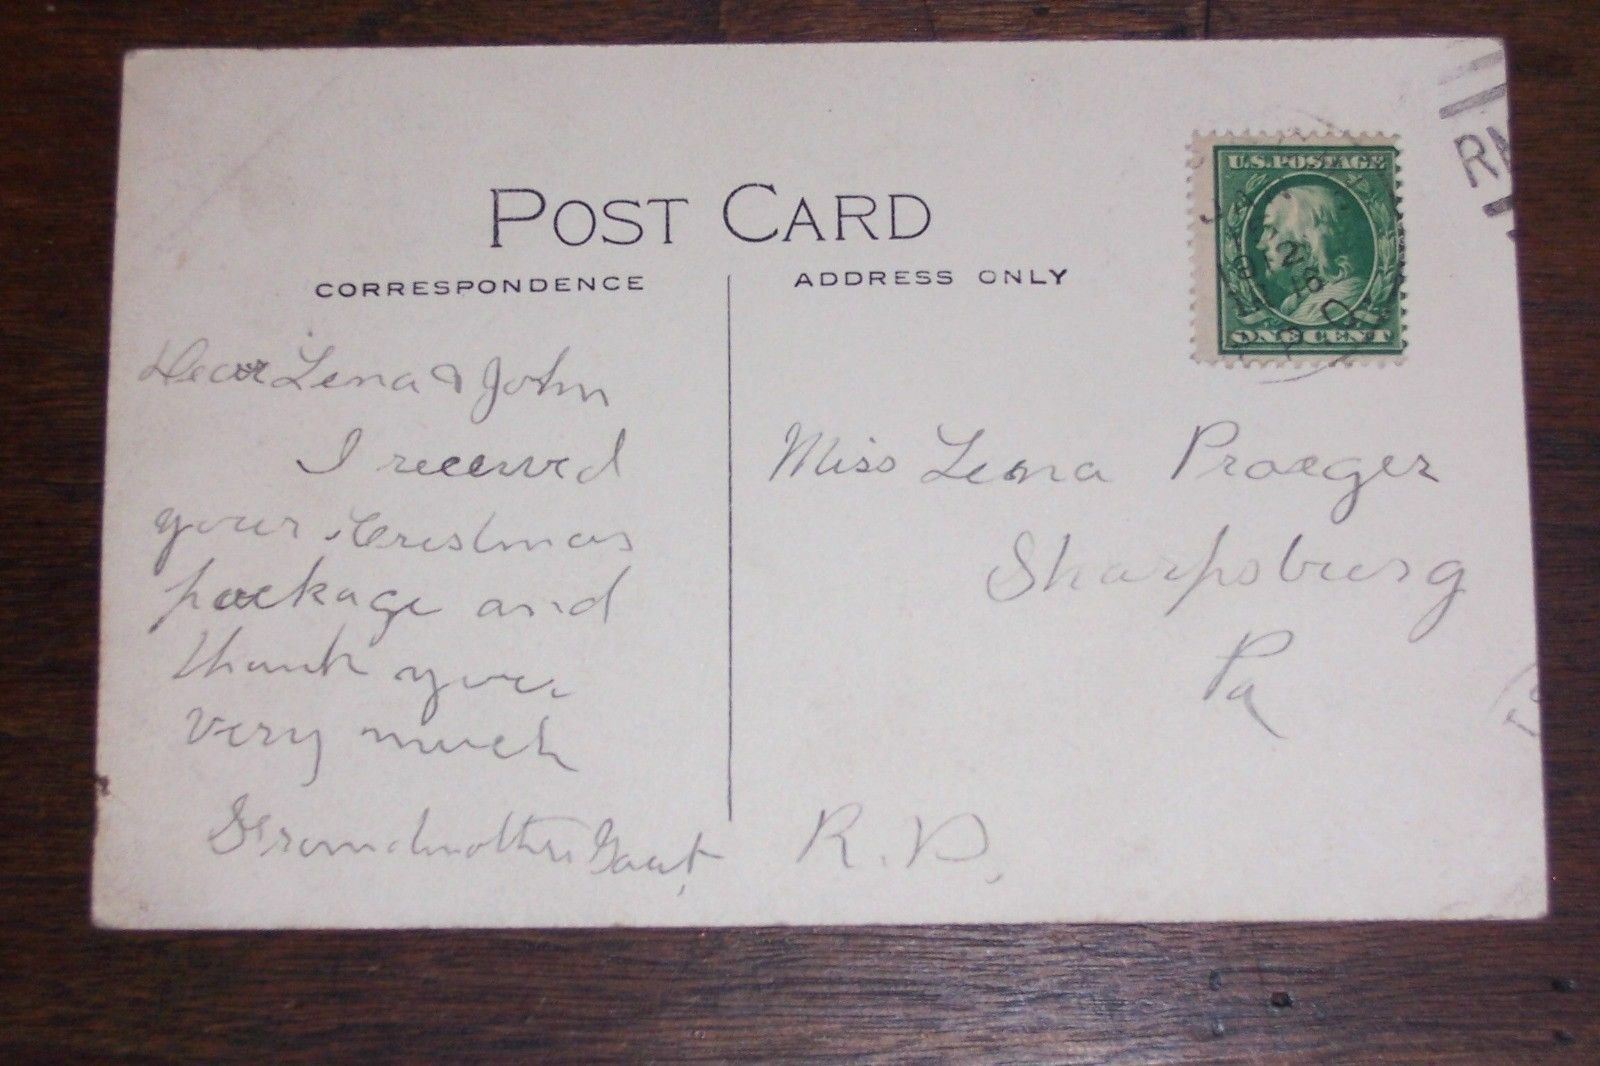 POST CARD
CORRESPONDENCE
ADDRESS ONLY
U.S. POSTAGE
ONE CENT
Dear Lena & John
I received
your Cristmas
package and
thank you
very much
Grandmother
Miss Lena Praeger
Sharpsburg
Pa
R. D.